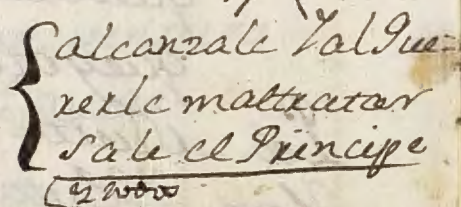 alcanzale Y al Que=
rerle maltratar
sale el Principe